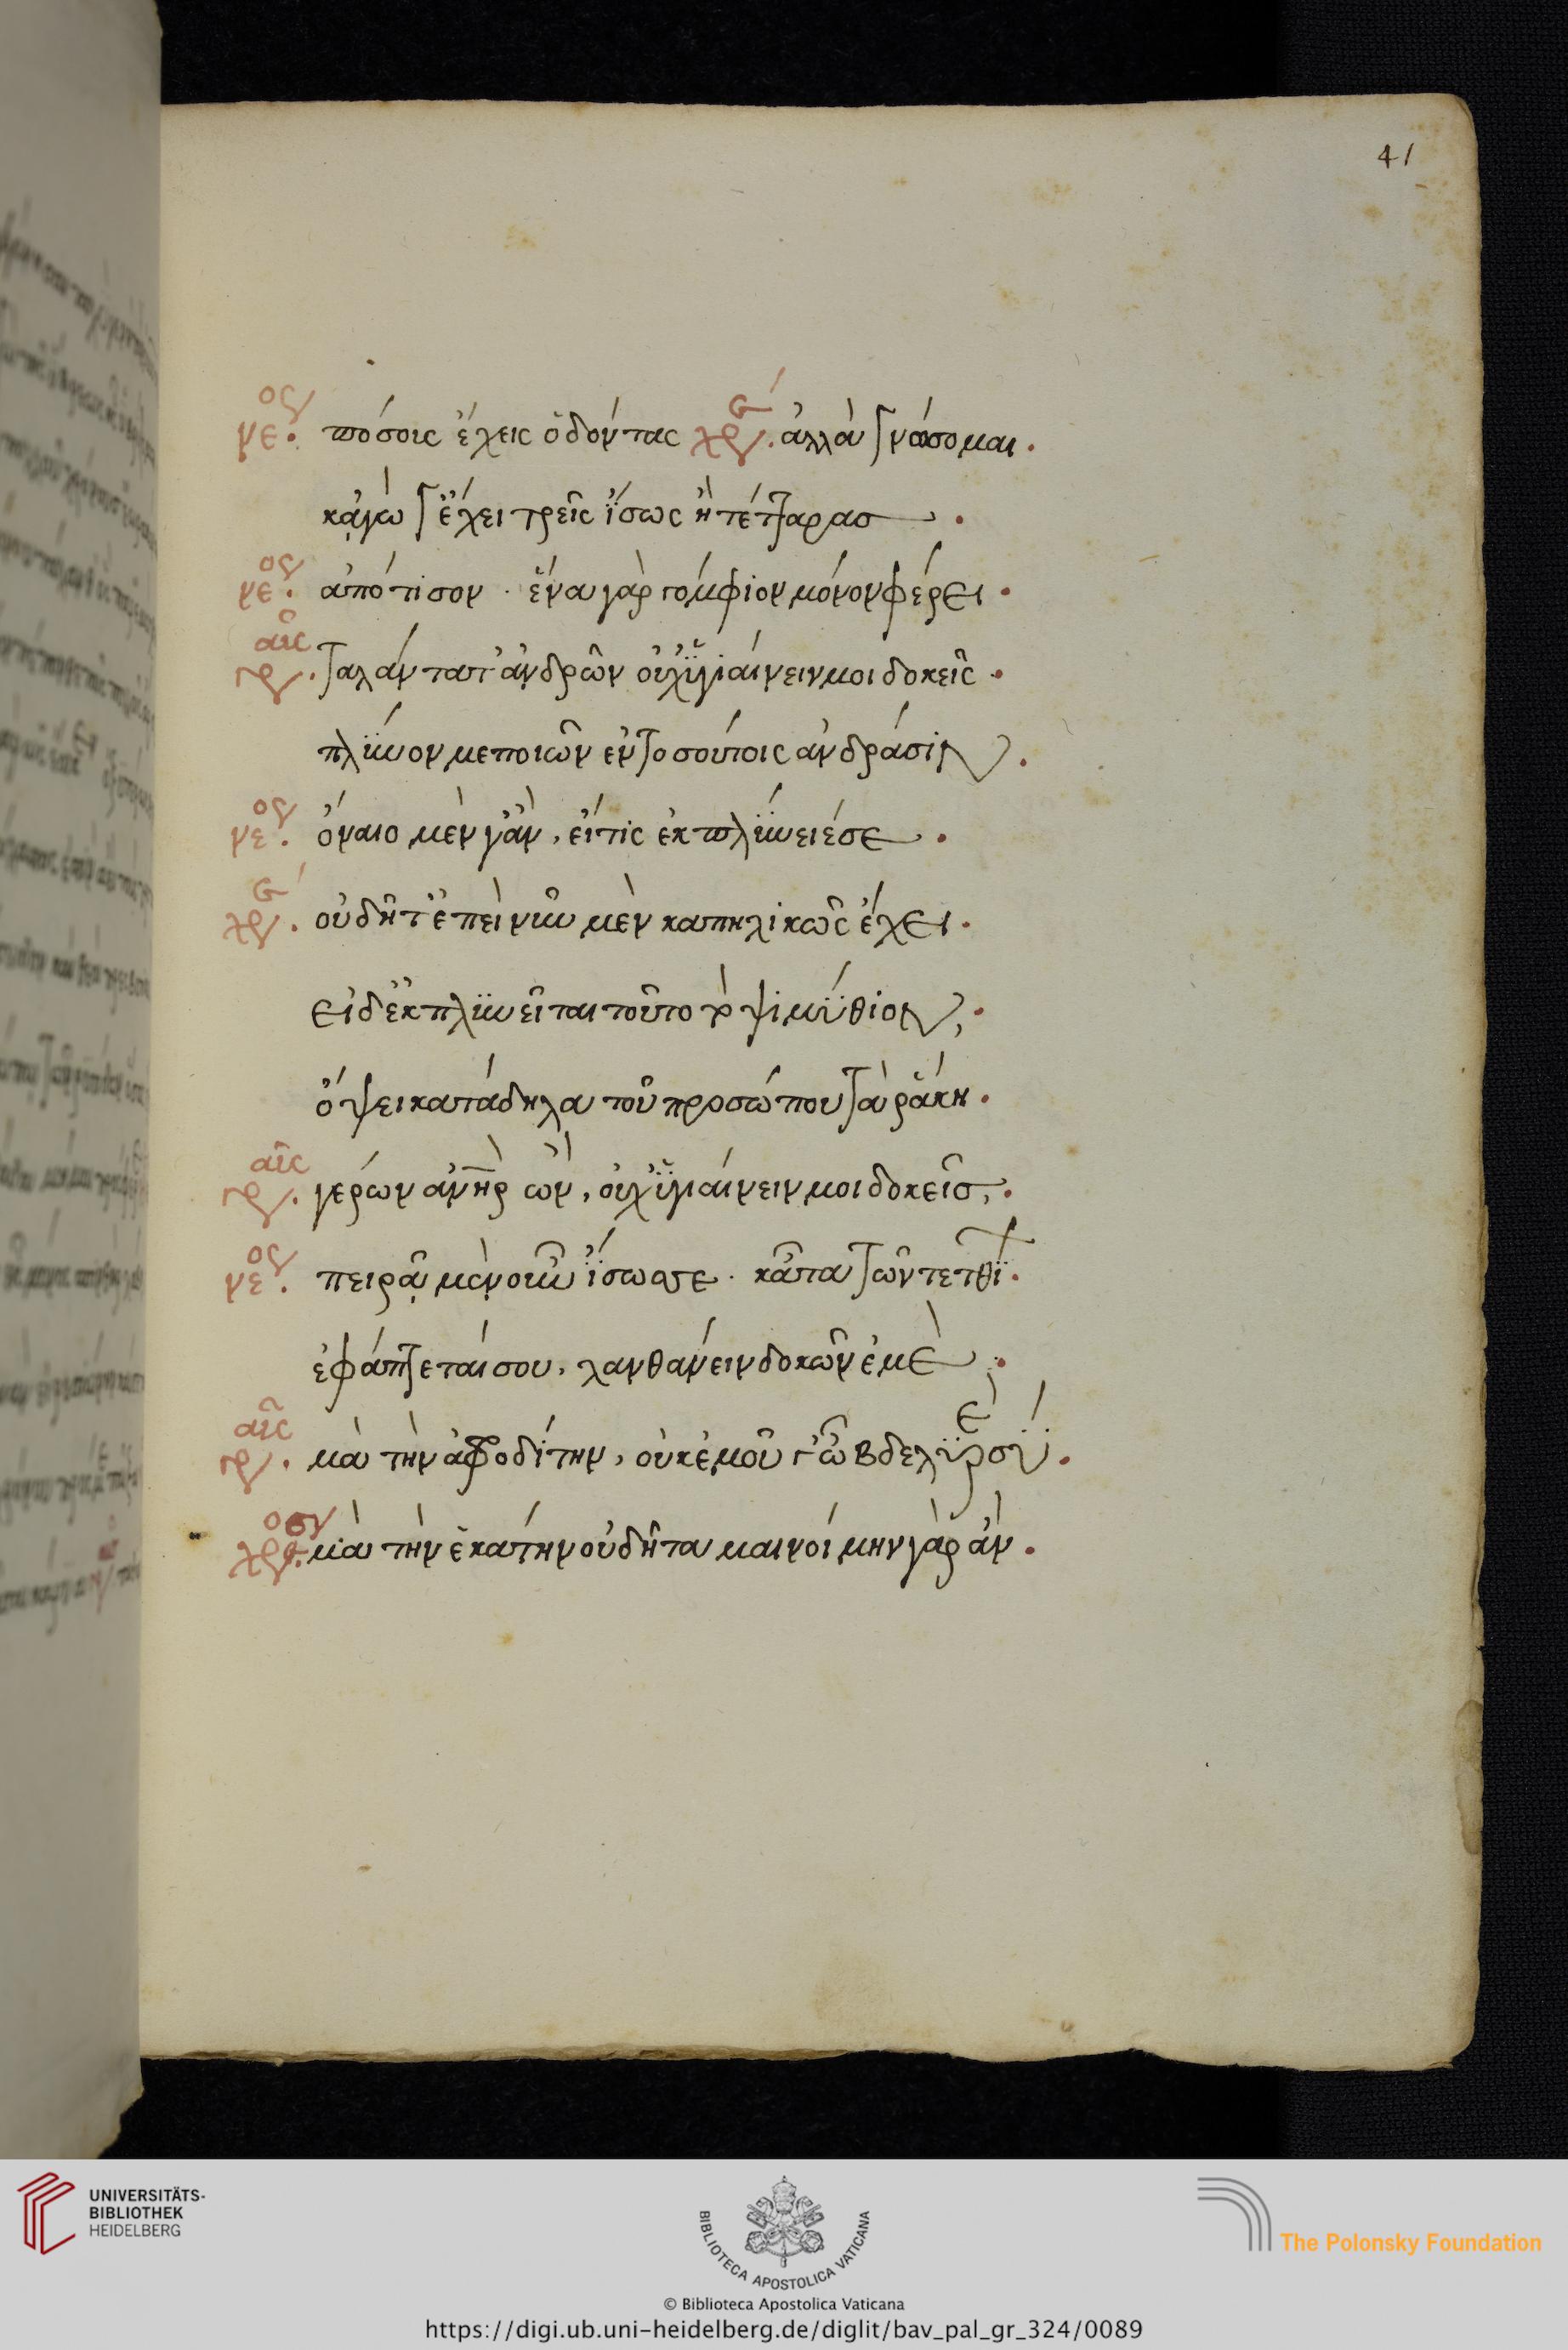 41
νεος. πόσοις ἔχεις ὀδόντας χρε. ἀλλὰ γνώσομαι.
κἄγωγ ἔχει τρεῖς ἴσως ἢ τέτταρασ.
νεος. ἀπότισον. ἕνα γὰρ γομφίον μόνον φέρει.
γραῦς. ταλάντατ' ἀνδρῶν οὐχ ὑγιαίνειν μοι δοκεῖς.
πλύνον με ποιῶν ἐν τοσούτοις ἀνδράσιν.
νεος. ὄναιο μὲν γ' ἂν, εἴ τις ἐκπλύνειέ σε.
χρε. οὐ δῆτ' ἐπεὶ νῦν μὲν καπηλικῶς ἔχει.
εἰ δ' ἐκπλυνεῖται τοῦτο τὸ ψιμύθιον,.
ὄψει κατάδηλα τοῦ προσώπου τὰ ῥάκη.
γραῦς. γέρων ἀνὴρ ὢν, οὐχ ὑγιαίνειν μοι δοκεῖσ,.
νεος. πειρᾷ μὲν οὖν ἴσωσ σε. κᾆτα τῶν τετθί.
ἐφάπτεταί σου, λανθάνειν δοκῶν ἐμὲ.
γραῦς. μὰ τὴν ἀφροδίτην, οὐκ ἐμοῦ γ' ὦ βδελυρὲ σύ.
χρε. μὰ τὴν ἑκάτην οὐ δῆτα μαινοίμην γὰρ ἄν.
UNIVERSITÄTS-
BIBLIOTHEK
HEIDELBERG
BIBLIOTECA APOSTOLICA VATICANA
The Polonsky Foundation
© Biblioteca Apostolica Vaticana
https://digi.ub.uni-heidelberg.de/diglit/bav_pal_gr_324/0089